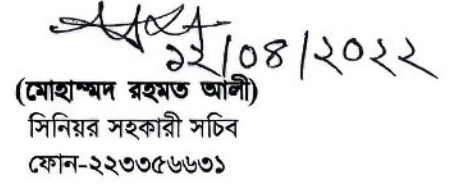 ১২/০৪/২০২২
(মোহাম্মদ রহমত আলী)
সিনিয়র সহকারী সচিব
ফোন-২২৩৩৫৬৬৩১